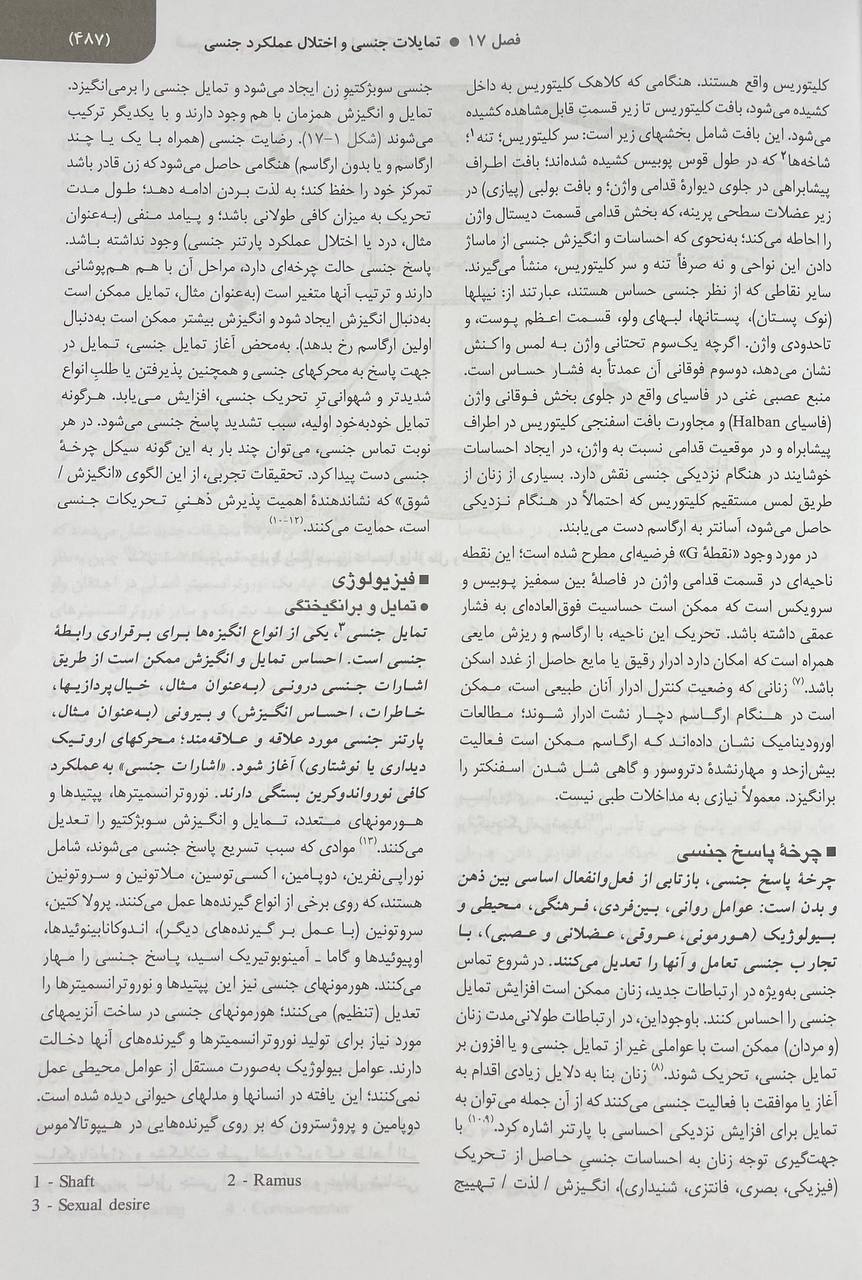 فصل ۱۷ ● تمایلات جنسی و اختلال عملکرد جنسی
(۴۸۷)
کلیتوریس واقع هستند. هنگامی که کلاهک کلیتوریس به داخل
کشیده می‌شود، بافت کلیتوریس تا زیر قسمتِ قابل‌مشاهده کشیده
می‌شود. این بافت شامل بخشهای زیر است: سر کلیتوریس؛ تنه۱؛
شاخه‌ها۲ که در طول قوس پوبیس کشیده شده‌اند؛ بافت اطراف
پیشابراهی در جلوی دیوارهٔ قدامی واژن؛ و بافت بولبی (پیازی) در
زیر عضلات سطحی پرینه، که بخش قدامی قسمت دیستال واژن
را احاطه می‌کند؛ به‌نحوی که احساسات و انگیزش جنسی از ماساژ
دادن این نواحی و نه صرفاً تنه و سر کلیتوریس، منشأ می‌گیرند.
سایر نقاطی که از نظر جنسی حساس هستند، عبارتند از: نیپلها
(نوک پستان)، پستانها، لبهای ولو، قسمت اعظم پوست، و
تاحدودی واژن. اگرچه یک‌سوم تحتانی واژن به لمس واکنش
نشان می‌دهد، دوسوم فوقانی آن عمدتاً به فشار حساس است.
منبع عصبی غنی در فاسیای واقع در جلوی بخش فوقانی واژن
(فاسیای Halban) و مجاورت بافت اسفنجی کلیتوریس در اطراف
پیشابراه و در موقعیت قدامی نسبت به واژن، در ایجاد احساسات
خوشایند در هنگام نزدیکی جنسی نقش دارد. بسیاری از زنان از
طریق لمس مستقیم کلیتوریس که احتمالاً در هنگام نزدیکی
حاصل می‌شود، آسانتر به ارگاسم دست می‌یابند.
در مورد وجود «نقطهٔ G» فرضیه‌ای مطرح شده است؛ این نقطه
ناحیه‌ای در قسمت قدامی واژن در فاصلهٔ بین سمفیز پوبیس و
سرویکس است که ممکن است حساسیت فوق‌العاده‌ای به فشار
عمقی داشته باشد. تحریک این ناحیه، با ارگاسم و ریزش مایعی
همراه است که امکان دارد ادرار رقیق یا مایع حاصل از غدد اسکن
باشد.(۷) زنانی که وضعیت کنترل ادرار آنان طبیعی است، ممکن
است در هنگام ارگاسم دچار نشت ادرار شوند؛ مطالعات
اورودینامیک نشان داده‌اند که ارگاسم ممکن است فعالیت
بیش‌ازحد و مهارنشدهٔ دتروسور و گاهی شل شدن اسفنکتر را
برانگیزد. معمولاً نیازی به مداخلات طبی نیست.
■ چرخهٔ پاسخ جنسی
چرخهٔ پاسخ جنسی، بازتابی از فعل‌وانفعال اساسی بین ذهن
و بدن است: عوامل روانی، بین‌فردی، فرهنگی، محیطی و
بیولوژیک (هورمونی، عروقی، عضلانی و عصبی)، با
تجارب جنسی تعامل و آنها را تعدیل می‌کنند. در شروع تماس
جنسی به‌ویژه در ارتباطات جدید، زنان ممکن است افزایش تمایل
جنسی را احساس کنند. باوجوداین، در ارتباطات طولانی‌مدت زنان
(و مردان) ممکن است با عواملی غیر از تمایل جنسی و یا افزون بر
تمایل جنسی، تحریک شوند.(۸) زنان بنا به دلایل زیادی اقدام به
آغاز یا موافقت با فعالیت جنسی می‌کنند که از آن جمله می‌توان به
تمایل برای افزایش نزدیکی احساسی با پارتنر اشاره کرد.(۱۰،۹) با
جهت‌گیری توجه زنان به احساسات جنسیِ حاصل از تحریک
(فیزیکی، بصری، فانتزی، شنیداری)، انگیزش / لذت / تهییج
جنسی سوبژکتیوِ زن ایجاد می‌شود و تمایل جنسی را برمی‌انگیزد.
تمایل و انگیزش همزمان با هم وجود دارند و با یکدیگر ترکیب
می‌شوند (شکل ۱-۱۷). رضایت جنسی (همراه با یک یا چند
ارگاسم و یا بدون ارگاسم) هنگامی حاصل می‌شود که زن قادر باشد
تمرکز خود را حفظ کند؛ به لذت بردن ادامه دهد؛ طول مدت
تحریک به میزان کافی طولانی باشد؛ و پیامد منفی (به‌عنوان
مثال، درد یا اختلال عملکرد پارتنر جنسی) وجود نداشته باشد.
پاسخ جنسی حالت چرخه‌ای دارد، مراحل آن با هم هم‌پوشانی
دارند و ترتیب آنها متغیر است (به‌عنوان مثال، تمایل ممکن است
به‌دنبال انگیزش ایجاد شود و انگیزش بیشتر ممکن است به‌دنبال
اولین ارگاسم رخ بدهد). به‌محض آغاز تمایل جنسی، تمایل در
جهت پاسخ به محرکهای جنسی و همچنین پذیرفتن یا طلبِ انواع
شدیدتر و شهوانی‌ترِ تحریک جنسی، افزایش می‌یابد. هرگونه
تمایل خودبه‌خود اولیه، سبب تشدید پاسخ جنسی می‌شود. در هر
نوبت تماس جنسی، می‌توان چند بار به این گونه سیکل چرخهٔ
جنسی دست پیدا کرد. تحقیقات تجربی، از این الگوی «انگیزش /
شوق» که نشاندهندهٔ اهمیت پذیرش ذهنیِ تحریکات جنسی
است، حمایت می‌کنند.(۱۲-۱۰)
■ فیزیولوژی
● تمایل و برانگیختگی
تمایل جنسی۳، یکی از انواع انگیزه‌ها برای برقراری رابطهٔ
جنسی است. احساس تمایل و انگیزش ممکن است از طریق
اشارات جنسی درونی (به‌عنوان مثال، خیال‌پردازیها،
خاطرات، احساس انگیزش) و بیرونی (به‌عنوان مثال،
پارتنر جنسی مورد علاقه و علاقه‌مند؛ محرکهای اروتیک
دیداری یا نوشتاری) آغاز شود. «اشارات جنسی» به عملکرد
کافی نورواندوکرین بستگی دارند. نوروترانسمیترها، پپتیدها و
هورمونهای متعدد، تمایل و انگیزش سوبژکتیو را تعدیل
می‌کنند.(۱۳) موادی که سبب تسریع پاسخ جنسی می‌شوند، شامل
نوراپی‌نفرین، دوپامین، اکسی‌توسین، ملاتونین و سروتونین
هستند، که روی برخی از انواع گیرنده‌ها عمل می‌کنند. پرولاکتین،
سروتونین (با عمل بر گیرنده‌های دیگر)، اندوکانابینوئیدها،
اوپیوئیدها و گاما ـ آمینوبوتیریک اسید، پاسخ جنسی را مهار
می‌کنند. هورمونهای جنسی نیز این پپتیدها و نوروترانسمیترها را
تعدیل (تنظیم) می‌کنند؛ هورمونهای جنسی در ساخت آنزیمهای
مورد نیاز برای تولید نوروترانسمیترها و گیرنده‌های آنها دخالت
دارند. عوامل بیولوژیک به‌صورت مستقل از عوامل محیطی عمل
نمی‌کنند؛ این یافته در انسانها و مدلهای حیوانی دیده شده است.
دوپامین و پروژسترون که بر روی گیرنده‌هایی در هیپوتالاموس
1 - Shaft 2 - Ramus
3 - Sexual desire